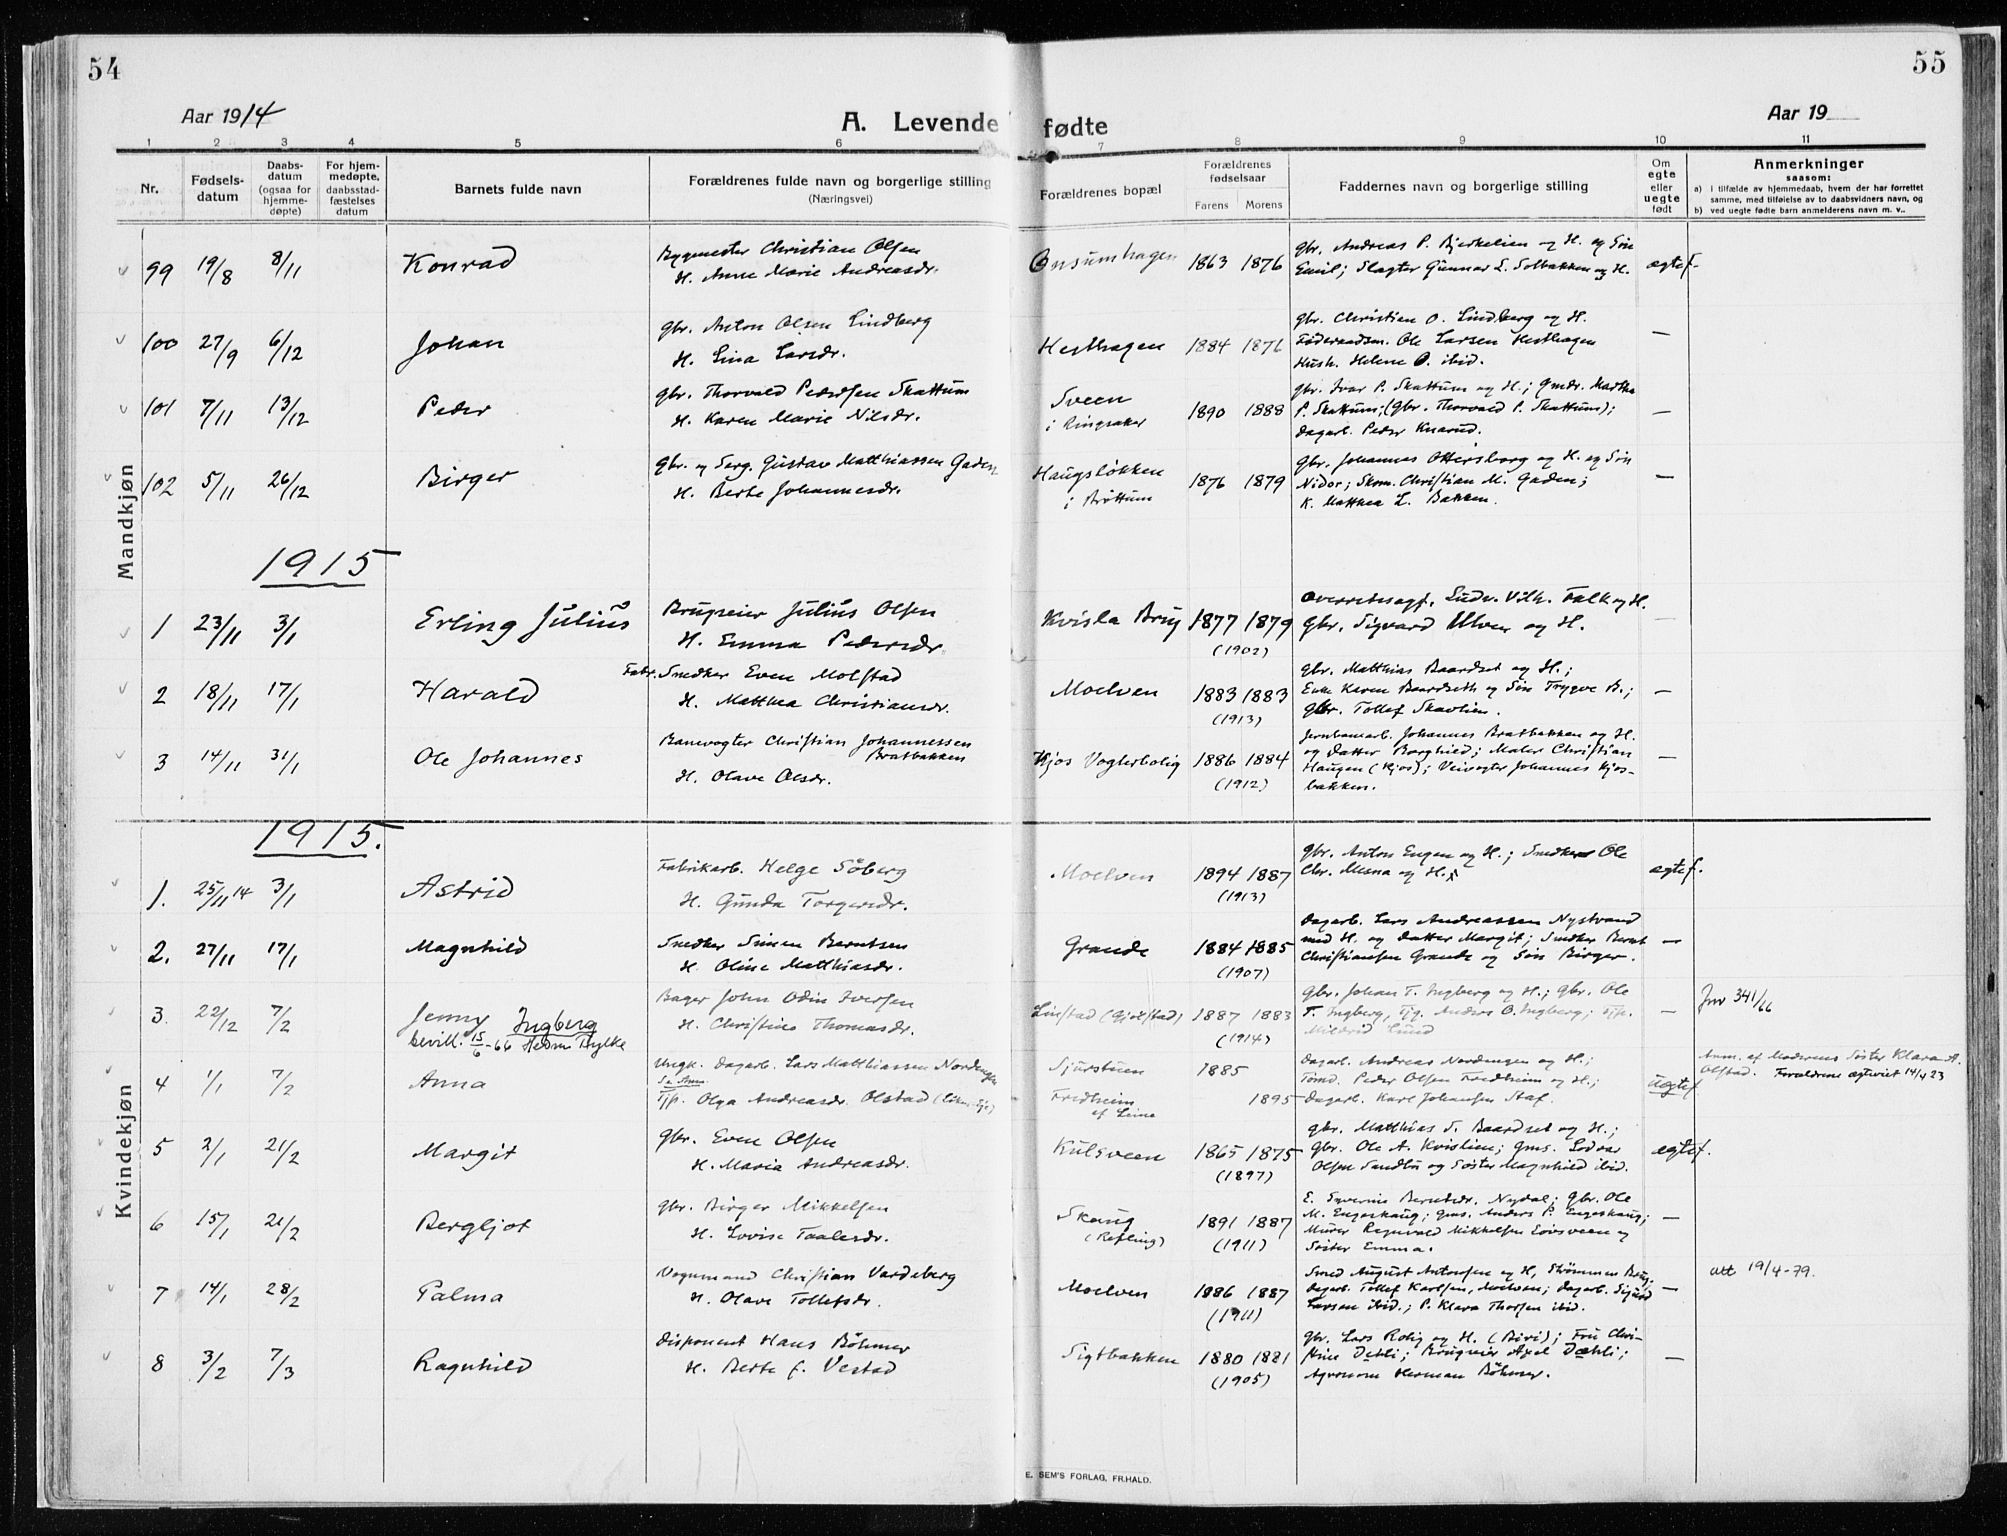 54
55
Aar 1914
A. Levende fødte
Aar 19
1 2 3 4 5 6 7 8 9 10 11
Nr.
Fødsels-
datum
Daabs-
datum
(ogsaa for
hjemme-
døpte)
For hjem-
medøpte,
daabsstad-
fæstelses
datum
Barnets fulde navn
Forældrenes fulde navn og borgerlige stilling
(Næringsvei)
Forældrenes bopæl
Forældrenes
fødselsaar
Farens Morens
Faddernes navn og borgerlige stilling
Om
egte
eller
uegte
født
Anmerkninger
saasom:
a) i tilfælde av hjemmedaab, hvem der har forrettet
samme, med tilføielse av to daabsvidners navn, og
b) ved uegte fødte barn anmelderens navn m. v..
Mandkjøn
99 19/8 8/11 Konrad
Bygmester Christian Olsen
H. Anne Marie Andreasdr.
Onsumhagen 1863 1876
gbr. Andreas P. Bjerkelien og H. og Søn
Emil; Slagter Gunnar L. Solbakken og H.
egtef.
100 27/9 6/12 Johan
gbr. Anton Olsen Lindberg
H. Lina Larsdr.
Hesthagen 1884 1876
gbr. Christian O. Lindberg og H.
Føderaadsm. Ole Larsen Hesthagen
Hush. Helene O. ibid.
—
101 7/11 13/12 Peder
gbr. Thorvald Pedersen Skattum
H. Karen Marie Nilsdr.
Sveen
i Ringsaker
1890 1888
gbr. Ivar P. Skattum og H.; Gmdr. Martha
P. Skattum; (gbr. Thorvald P. Skattum);
dagarb. Peder Knarud.
—
102 5/11 26/12 Birger
gbr. og Serg. Gustav Matthiassen Gaden
H. Berte Johannesdr.
Haugsløkken
i Brøttum
1876 1879
gbr. Johannes Ottersborg og H. og Søn
Nidor; Skom. Christian M. Gaden;
K. Matthea L. Bakken.
—
1915
1 23/11 3/1 Erling Julius
Brugseier Julius Olsen
H. Emma Pedersdr.
Kvisla Brug 1877 1879
(1902)
Overretssagf. Ludv. Vilh. Falk og H.
gbr. Sigvard Ulven og H.
—
2 18/11 17/1 Harald
Fabr. Snedker Even Molstad
H. Matthea Christiansdr.
Moelven 1883 1883
(1913)
gbr. Matthias Baardset og H.;
Enke Karen Baardseth og Søn Trygve B.;
gbr. Tollef Skavlien.
—
3 14/11 31/1 Ole Johannes
Banevogter Christian Johannessen
Bratbakken
H. Olave Olsdr.
Kjos Vogterbolig 1886 1884
(1912)
Jernbanearb. Johannes Bratbakken og H.
og Datter Borghild; Maler Christian
Haugen (Kjos); Veivogter Johannes Kjos-
bakken.
—
Kvindekjøn
1915.
1. 25/11 14 3/1 Astrid
Fabrikarb. Helge Søberg
H. Gunda Torgersdr.
Moelven 1894 1887
(1913)
gbr. Anton Engen og H.; Snedker Ole
Chr. Mesna og H.
egtef.
2. 27/11 17/1 Magnhild
Snedker Simen Berntsen
H. Oline Matthiasdr.
Grande 1884 1885
(1907)
Dagarb. Lars Andreassen Nystrand
med H. og Datter Margit; Snedker Bernt
Christiansen Grande og Søn Birger.
—
3. 22/12 7/2 Jenny Ingberg
bevill. 15/6-66 Hedm Fylke
Bager John Odin Iversen
H. Christine Thomasdr.
Linstad (Gjølstad) 1887 1883
(1914)
gbr. Johan T. Ingberg og H.; gbr. Ole
T. Ingberg, Tjg. Anders O. Ingberg; Tjp.
Mildrid Lund
—
Jnr 341/66
4 1/1 7/2 Anna
Ungk. Dagarb. Lars Matthiassen Nordengen
Se Anm.
Tjp. Olga Andreasdr. Olstad
Sjurstuen 1885
Fredheim
af Leine
1895
Dagarb. Andreas Nordengen og H.;
Tømd. Peder Olsen Fredheim og H.;
Dagarb. Karl Johansen Staf.
uegtef
Anm. af Moderens Søster Klara A.
Olstad. Forældrene ægteviet 14/4 23
5 2/1 21/2 Margit
gbr. Even Olsen
H. Maria Andreasdr.
Kulsveen 1865 1875
(1897)
gbr. Matthias S. Baardset og H.;
gbr. Ole A. Kvistlien; gms. Lodvar
Olsen Sandbu og Søster Magnhild ibid.
egtef.
6 15/1 21/2 Bergljot
gbr. Birger Mikkelsen
H. Lovise Taalesdr.
Skaug
(Refling)
1891 1887
(1911)
E. Syverine Berntsdr. Nydal; gbr. Ole
M. Engeskaug; gms. Anders P. Engeskaug;
Murer Regnvald Mikkelsen Lovisveen og
Søster Emma.
—
7 14/1 28/2 Palma
Vognmand Christian Vardeberg
H. Olave Tollefsdr.
Moelven 1886 1887
(1911)
Smed August Antonsen og H, Strømmen Brug.
Dagarb. Tollef Karlsen, Moelven; Dagarb. Sigurd
Larsen ibid.; P. Klara Thorsen ibid.
—
att 19/4-79.
8 3/2 7/3 Ragnhild
Disponent Hans Bøhmer
H. Berte f. Vestad
Sigtbakken 1880 1881
(1905)
gbr. Lars Rolig og H. (Biri); Fru Chri-
stine Dæhli; Brugseier Axel Dæhli;
Agronom Herman Bøhmer.
—
E. SEM'S FORLAG, FR.HALD.